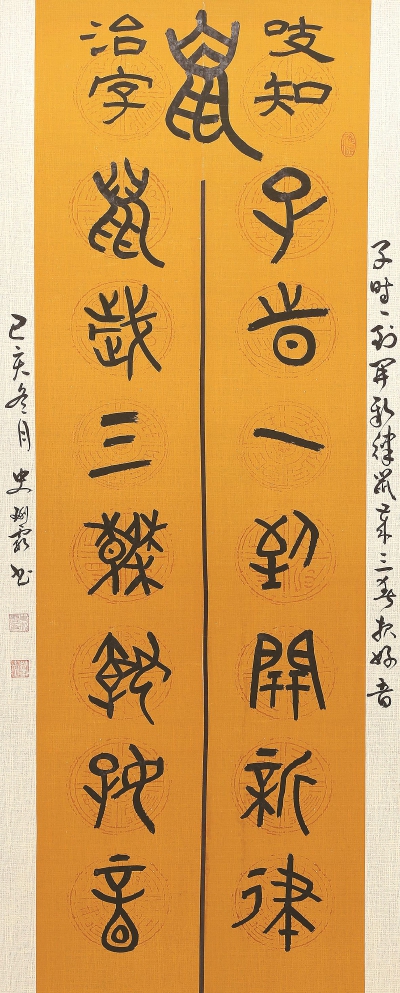 吱知
鼠
治字
子旹一到開新律
鼠歲三報好音
子時一到開新律鼠歲三春报好音
己亥冬月 史書